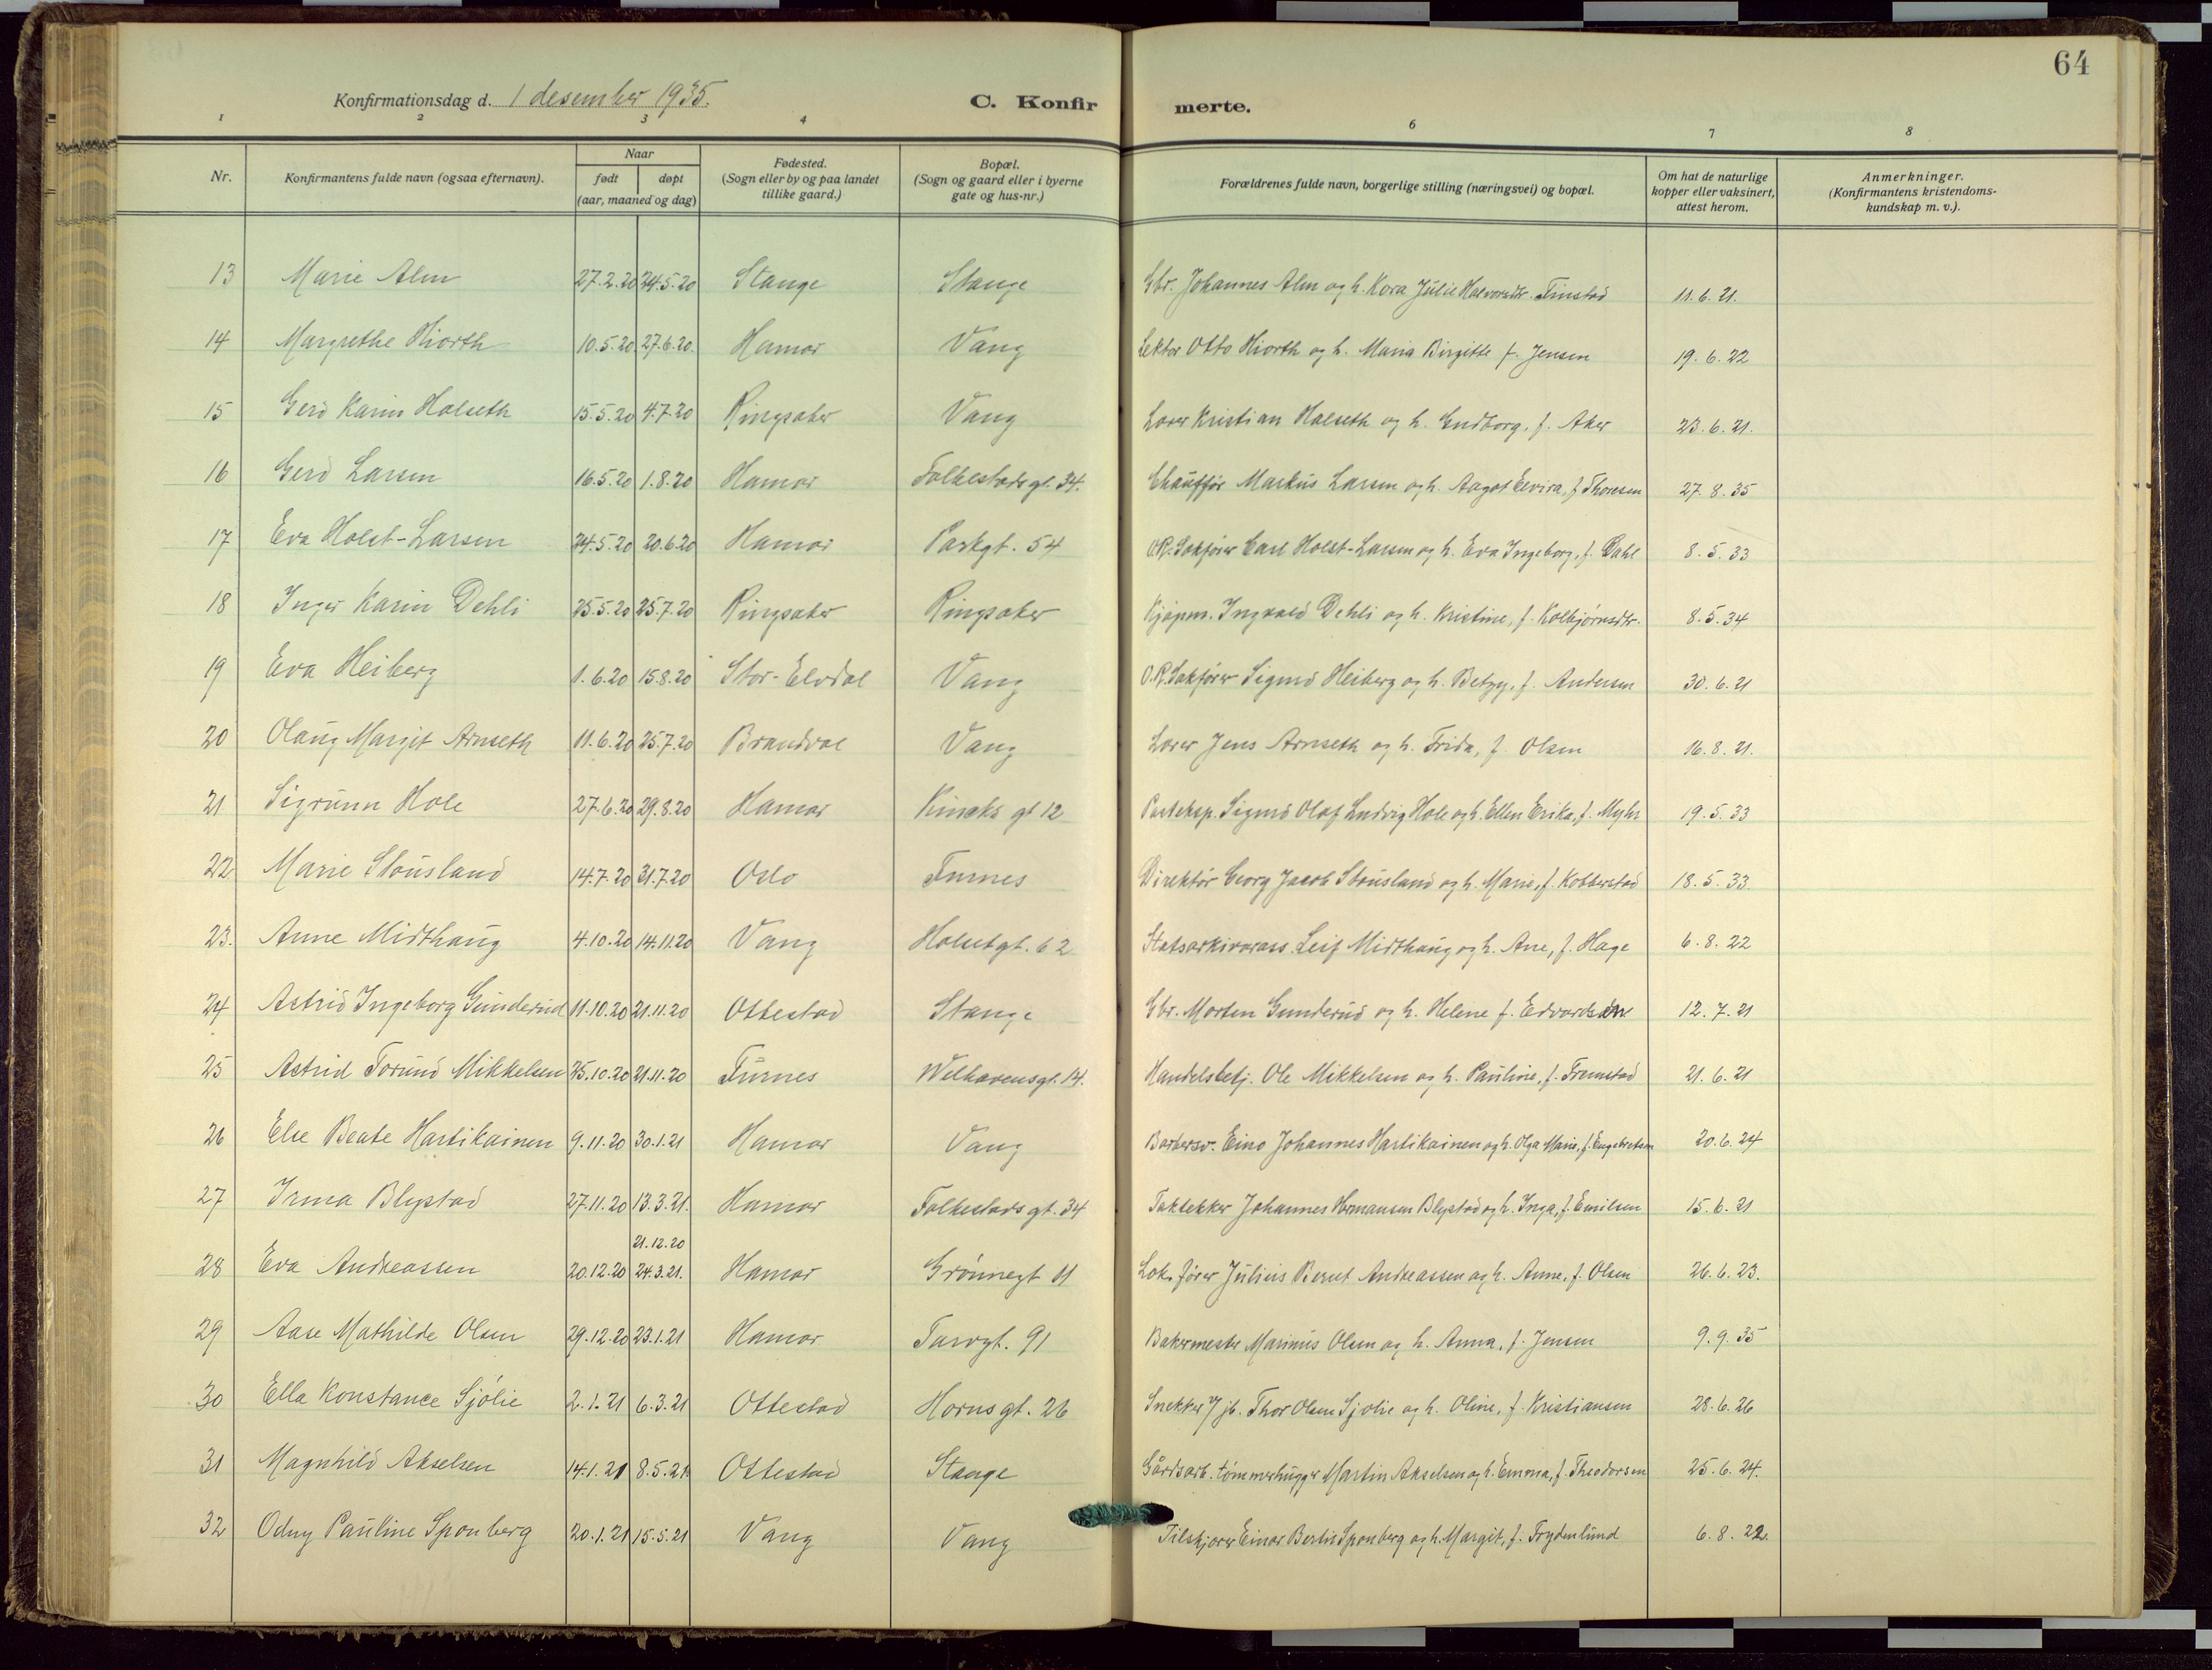 64
Konfirmationsdag d. 1 desember 1935. C. Konfirmerte.
1 2 3 4 6 7 8
Nr. Konfirmantens fulde navn (ogsaa efternavn). Naar født døpt (aar, maaned og dag) Fødested. (Sogn eller by og paa landet tillike gaard.) Bopæl. (Sogn og gaard eller i byerne gate og hus-nr.) Forældrenes fulde navn, borgerlige stilling (næringsvei) og bopæl. Om hat de naturlige kopper eller vaksinert, attest herom. Anmerkninger. (Konfirmantens kristendoms-kundskap m. v.).
13 Marie Alm 27.2.20 24.5.20 Stange Stange Gbr. Johannes Alm og h. Kora Julie Halvorsdtr. Finstad 11.6.21.
14 Margrethe Hiorth 10.5.20. 27.6.20. Hamar Vang Lektor Otto Hiorth og h. Maria Birgitte f. Jensen 19.6.22
15 Gerd Karin Halseth 15.5.20 4.7.20 Ringsaker Vang Lærer Kristian Halseth og h. Gudborg, f. Aker 23.6.21.
16 Gerd Larsen 16.5.20 1.8.20 Hamar Folkestads gt. 34. Chauffør Markus Larsen og h. Aagot Elvira, f. Thoresen 27.8.35
17 Eva Holst-Larsen 24.5.20 20.6.20 Hamar Parkgt. 54 O.R. Sakfører Carl Holst-Larsen og h. Eva Ingeborg, f. Dahl 8.5.33
18 Inger Karin Dehli 25.5.20 25.7.20 Ringsaker Ringsaker Kjøpm. Ingvald Dehli og h. Kristine, f. Kolbjørnsdtr. 8.5.34
19 Eva Heiberg 1.6.20 15.8.20 Stor-Elvdal Vang O.R. Sakfører Sigurd Heiberg og h. Betzy, f. Andersen 30.6.21
20 Olaug Margit Arnseth 11.6.20 25.7.20 Brandval Vang Lærer Jens Arnseth og h. Frida, f. Olsen 16.8.21.
21 Sigrunn Hole 27.6.20 29.8.20 Hamar Kincks gt 12 Posteksp. Sigurd Olaf Ludvig Hole og h. Ellen Erika, f. Myhr 19.5.33
22 Marie Stousland 14.7.20 31.7.20 Oslo Furnes Direktør Georg Jacob Stousland og h. Marie, f. Kobberstad 18.5.33
23. Anne Midthaug 4.10.20 14.11.20 Vang Holsetgt. 62 Statsarkivarass. Leif Midthaug og h. Ane, f. Hage 6.8.22
24 Astrid Ingeborg Gunderud 11.10.20 21.11.20 Ottestad Stange Gbr. Morten Gunderud og h. Helene f. Edvardsen 12.7.21
25 Astrid Torund Mikkelsen 25.10.20 21.11.20 Furnes Welhavensgt. 14. Handelsbetj. Ole Mikkelsen og h. Pauline, f. Fremstad 21.6.21
26 Else Beate Hartikainen 9.11.20 30.1.21 Hamar Vang Barbersv. Eino Johannes Hartikainen og h. Olga Marie, f. Engebretsen 20.6.24
27 Irma Blystad 27.11.20 13.3.21. Hamar Folkestads gt. 34 Taktekker Johannes Hermansen Blystad og h. Inga, f. Emilsen 15.6.21
21.12.20
28 Eva Andreassen 20.12.20 24.3.21. Hamar Grønnegt 11 Lok. fører Julius Bernt Andreassen og h. Anne, f. Olsen 26.6.23.
29 Aase Mathilde Olsen 29.12.20 23.1.21 Hamar Torvgt. 91 Bakermester Marinius Olsen og h. Anna, f. Jensen 9.9.35
30 Ella Konstance Sjølie 2.1.21 6.3.21 Ottestad Horns gt. 26 Snekker jb. Thor Olsen Sjølie og h. Oline, f. Kristiansen 28.6.26
31 Magnhild Akselsen 14.1.21 8.5.21 Ottestad Stange Gårdsarb. tømmerhugger Martin Akselsen og h. Emma, f. Theodorsen 25.6.24.
32 Odny Pauline Sponberg 20.1.21 15.5.21 Vang Vang Tilskjærer Einar Bertin Sponberg og h. Margit, f. Frydenlund 6.8.22.